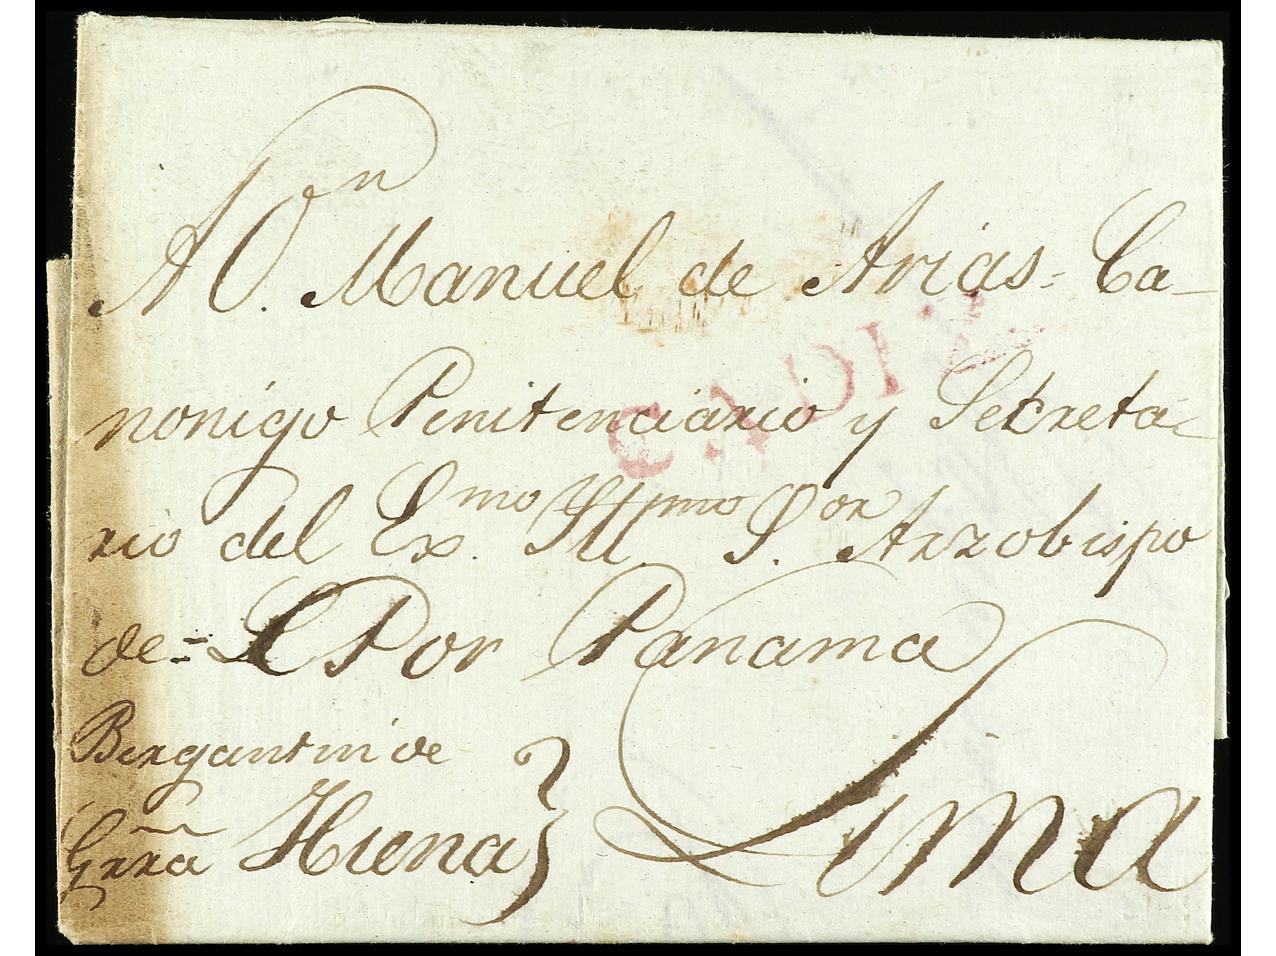 A Dn. Manuel de Arias= Ca-
CADIZ
nonigo Penitenciario y Secreta-
rio del Exmo. Illmo Sor. Arzobispo
de= Por Panama
Bergantin de
Grra Hiena
Lima